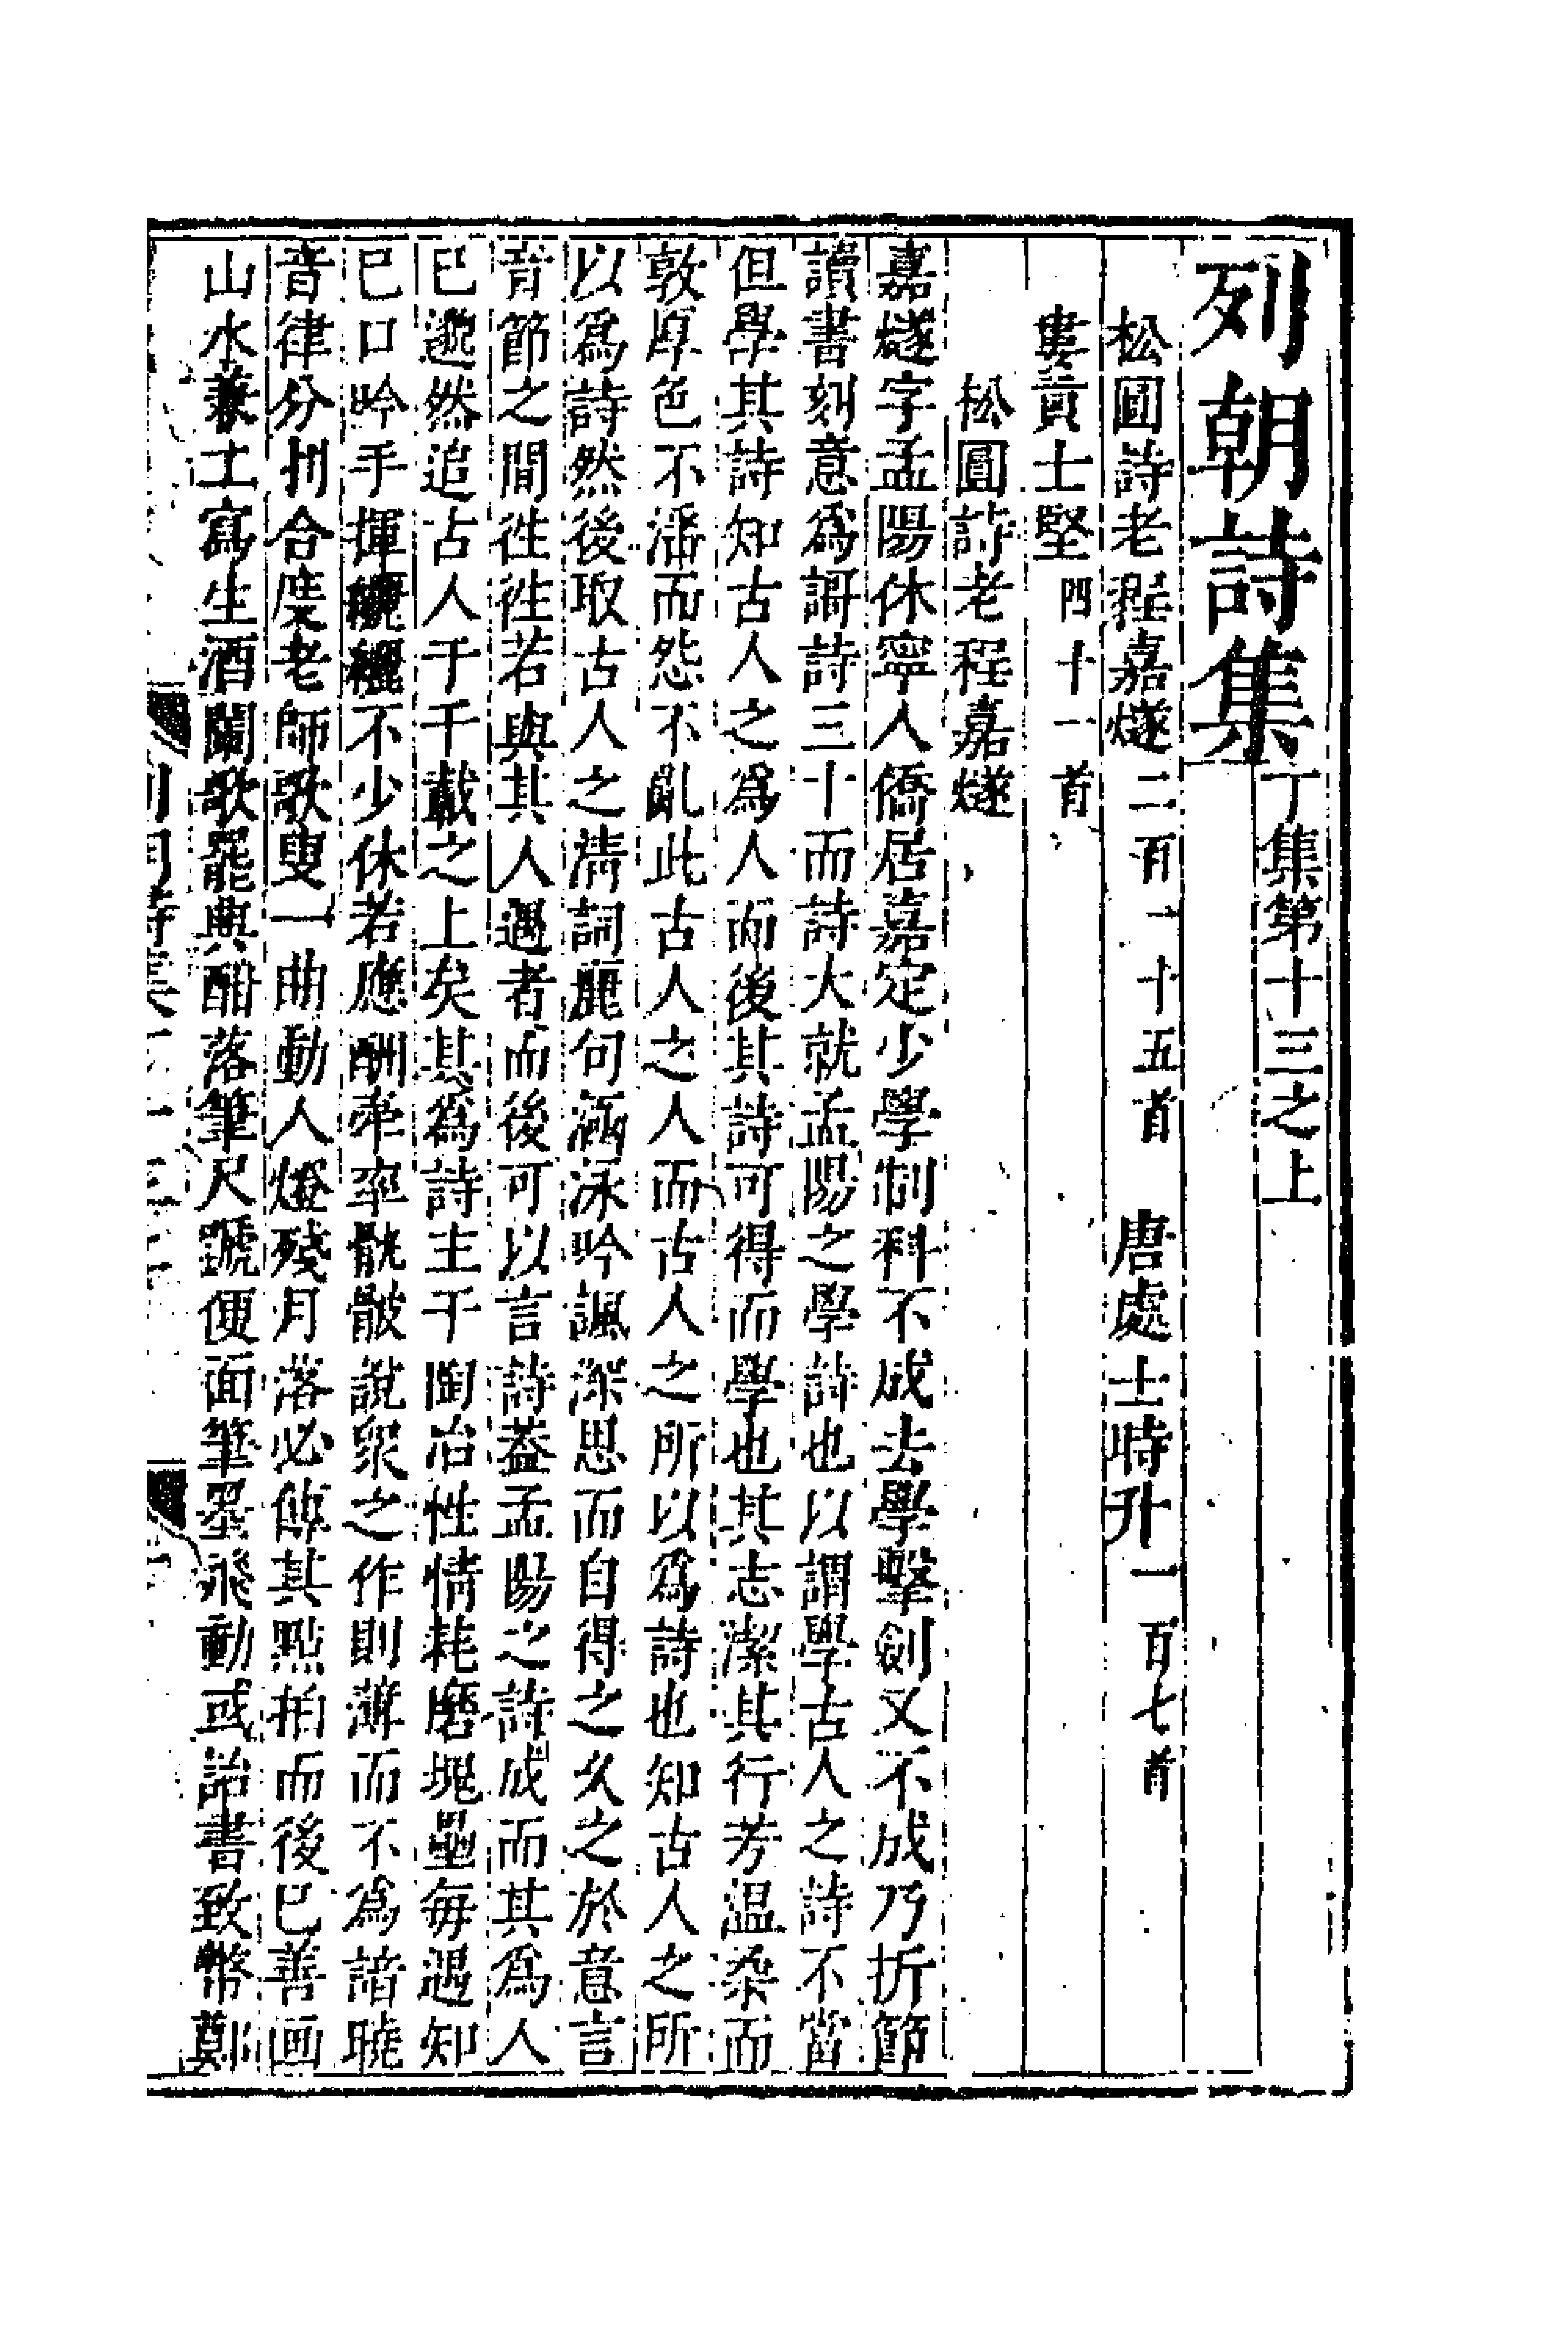 列朝詩集丁集第十三之上
松圓詩老程嘉燧二百一十五首　唐處士時升一百七首
婁貢士堅四十一首
松圓詩老程嘉燧
嘉燧字孟陽休寧人僑居嘉定少學制科不成去學擊劍又不成乃折節
讀書刻意爲謌詩三十而詩大就孟陽之學詩也以謂學古人之詩不當
但學其詩知古人之爲人而後其詩可得而學也其志潔其行芳温柔而
敦厚色不滛而怨不亂此古人之人而古人之所以爲詩也知古人之所
以爲詩然後取古人之清詞麗句涵泳吟諷深思而自得之久之於意言
音節之間徃徃若與其人遇者而後可以言詩葢孟陽之詩成而其爲人
已邈然追古人于千載之上矣其爲詩主于陶冶性情耗磨塊壘每遇知
已口吟手揮纚纚不少休若應酬牽率骯髒說衆之作則薄而不爲諳曉
音律分刌合度老師歌叟一曲動人燈殘月落必傳其點拍而後已善画
山水兼工寫生酒闌歌罷興酣落筆尺蹏便面筆墨飛動或詒書致幣鄭